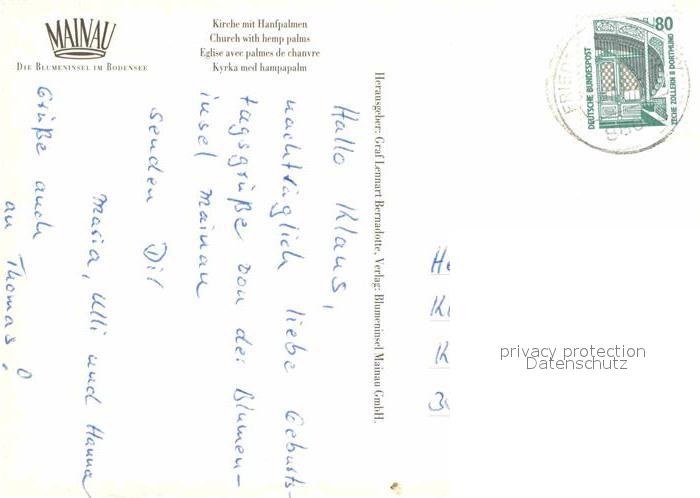 MAINAU
DIE BLUMENINSEL IM BODENSEE
Kirche mit Hanfpalmen
Church with hemp palms
Eglise avec palmes de chanvre
Kyrka med hampapalm
Hallo Klaus,
nachträglich liebe Geburts-
tagsgrüße von der Blumen-
insel Mainau
senden Dir
Maria, Ulli und Hanna
Grüße auch
an Thomas!
Herausgeber: Graf Lennart Bernadotte, Verlag: Blumeninsel Mainau GmbH.
80
DEUTSCHE BUNDESPOST
ZECHE ZOLLERN II DORTMUND
He
Kl
K
privacy protection
Datenschutz